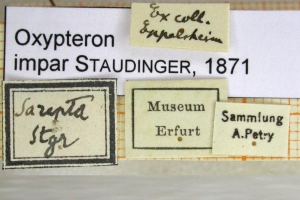 Ex coll.
Eppelsheim
Oxypteron
impar STAUDINGER, 1871
Sarepta
Stgr
Museum
Erfurt
Sammlung
A. Petry